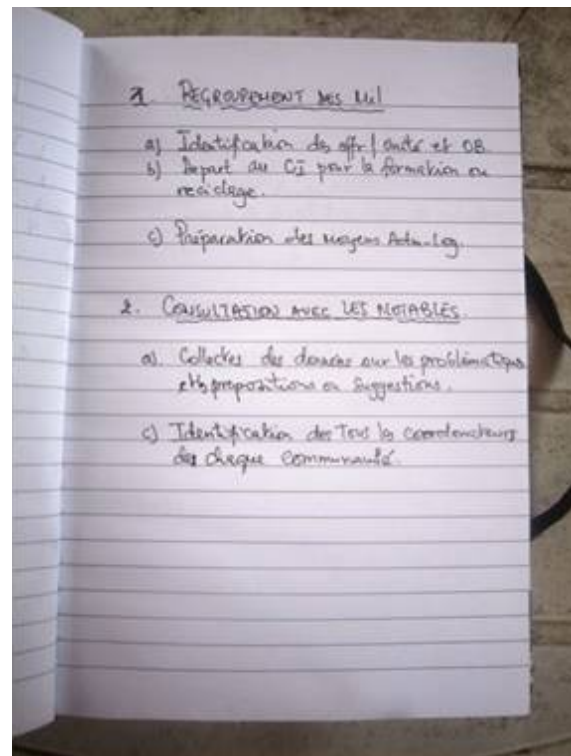 1. REGROUPEMENT DES Mil
a) Identification des offr / unité et OB
b) Depart au CI pour la formation ou
recidage.
c) Préparation des moyens Adm-Log.
2. CONSULTATION AVEC LES NOTABLES.
a). Collectes des donnés sur les problématiques
et propositions ou Suggestions.
c) Identification des Tous les coordonateurs
des chaque communauté.